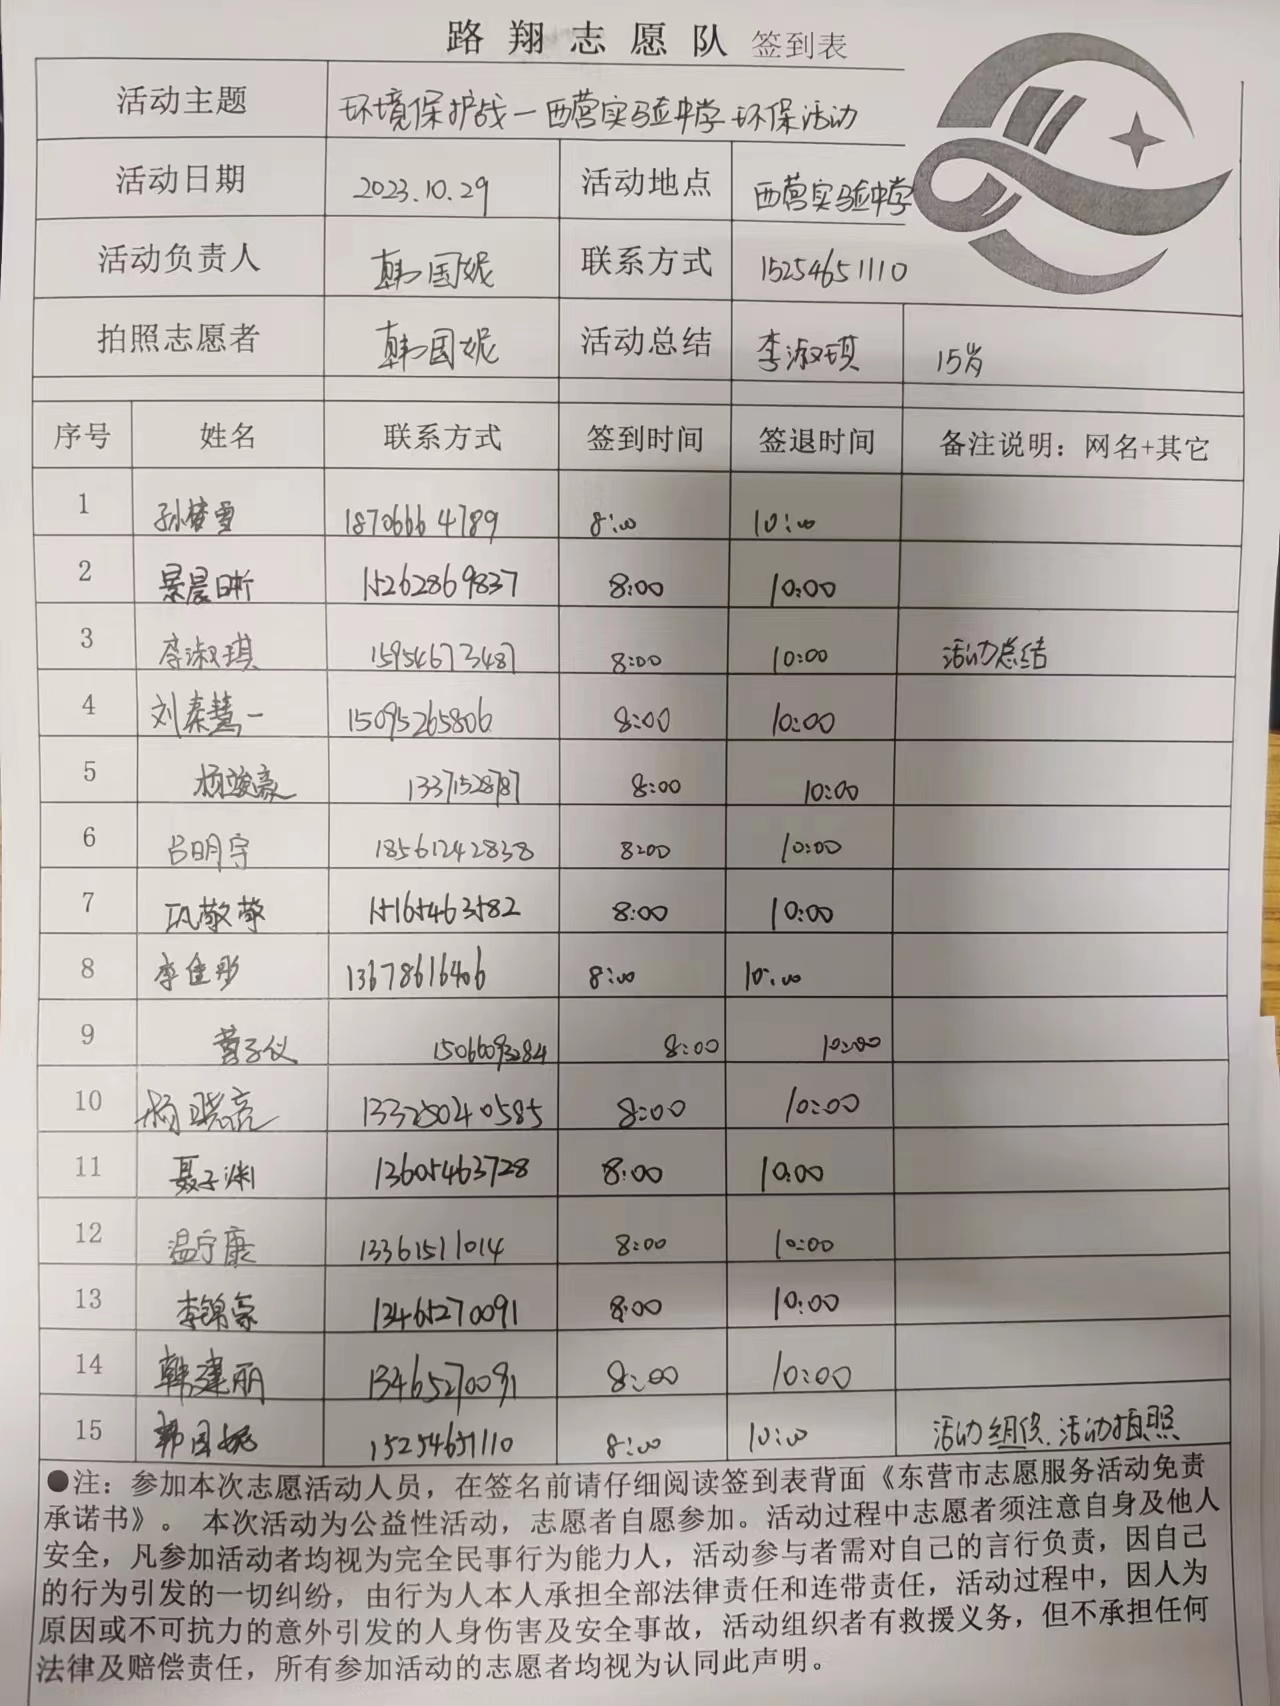 路翔志愿队 签到表
活动主题 环境保护战一西营实验中学环保活动
活动日期 2023.10.29 活动地点 西营实验中学
活动负责人 韩国妮 联系方式 15254651110
拍照志愿者 韩国妮 活动总结 李淑琪 15岁
序号 姓名 联系方式 签到时间 签退时间 备注说明：网名+其它
1 孙梦雪 18706664789 8:00 10:00
2 景晨昕 15262869837 8:00 10:00
3 李淑琪 15954673487 8:00 10:00 活动总结
4 刘秦慧一 15095265806 8:00 10:00
5 杨竣豪 13371528787 8:00 10:00
6 吕明宇 18561242838 8:00 10:00
7 巩敬敬 15165463582 8:00 10:00
8 李佳彤 13678616406 8:00 10:00
9 子仪 15066093284 8:00 10:00
10 杨晓亮 13325040585 8:00 10:00
11 聂子渊 13605463728 8:00 10:00
12 温宁康 13361511014 8:00 10:00
13 李锦豪 13465270091 8:00 10:00
14 韩建丽 13465270091 8:00 10:00
15 韩国妮 15254651110 8:00 10:00 活动组织、活动拍照
●注：参加本次志愿活动人员，在签名前请仔细阅读签到表背面《东营市志愿服务活动免责
承诺书》。 本次活动为公益性活动，志愿者自愿参加。活动过程中志愿者须注意自身及他人
安全，凡参加活动者均视为完全民事行为能力人，活动参与者需对自己的言行负责，因自己
的行为引发的一切纠纷，由行为人本人承担全部法律责任和连带责任，活动过程中，因人为
原因或不可抗力的意外引发的人身伤害及安全事故，活动组织者有救援义务，但不承担任何
法律及赔偿责任，所有参加活动的志愿者均视为认同此声明。